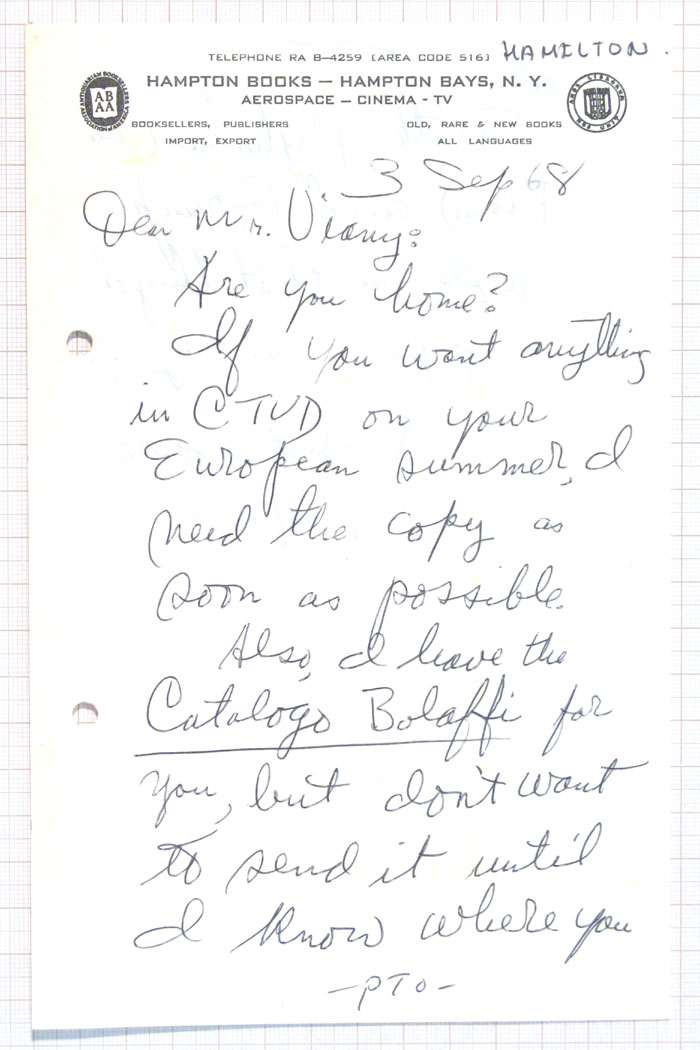 TELEPHONE RA 8-4259 (AREA CODE 516) HAMILTON.
HAMPTON BOOKS — HAMPTON BAYS, N. Y.
AEROSPACE — CINEMA - TV
BOOKSELLERS, PUBLISHERS OLD, RARE & NEW BOOKS
IMPORT, EXPORT ALL LANGUAGES
ANTIQUARIAN BOOKSELLERS ASSOCIATION OF AMERICA
AB
AA
3 Sep 68
Dear Mr. Viany:
Are you home?
If you want anything
in CTVD on your
European summer, I
need the copy as
soon as possible.
Also, I have the
Catalogo Bolaffi for
you, but don't want
to send it until
I know where you
—PTO—